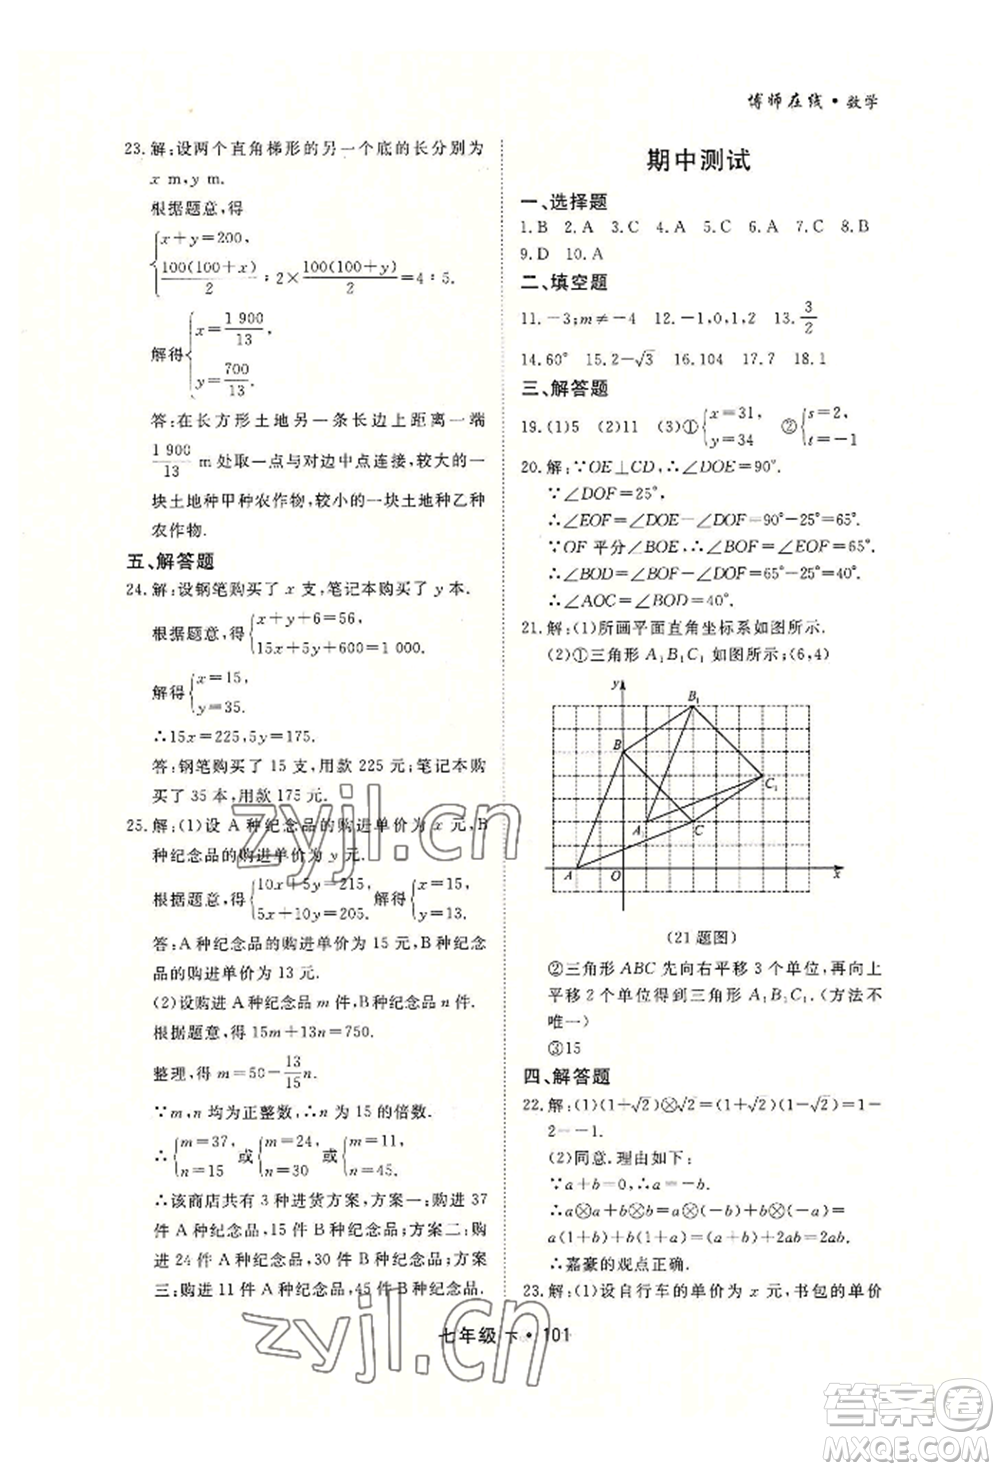 博师在线·数学
23.解:设两个直角梯形的另一个底的长分别为
x m,y m.
根据题意,得
{x+y=200,
100(100+x)/2 : 2×100(100+y)/2=4:5.
解得{x=1 900/13,
y=700/13.
答:在长方形土地另一条长边上得一端
1 900/13 m处取一点与对边中点连接,较大的一
块土地种甲种农作物,较小的一块土地种乙种
农作物.
五、解答题
24.解:设钢笔购买了 x 支,笔记本购买了 y 本.
根据题意,得{x+y+6=56,
15x+5y+600=1 000.
解得{x=15,
y=35.
∴15x=225,5y=175.
答:钢笔购买了 15 支,用款 225 元;笔记本购
买了 35 本,用款 175 元.
25.解:(1)设 A 种纪念品的购进单价为 x 元,B
种纪念品的购进单价为 y 元.
根据题意,得{10x+5y=215,
5x+10y=205.
解得{x=15,
y=13.
答:A 种纪念品的购进单价为 15 元,B 种纪念
品的购进单价为 13 元.
(2)设购进 A 种纪念品 m 件,B 种纪念品 n 件.
根据题意,得 15m+13n=750.
整理,得 m=50-13/15n.
∵m,n 均为正整数,∴n 为 15 的倍数.
∴{m=37,
n=15
或{m=24,
n=30
或{m=11,
n=45.
∴该商店共有 3 种进货方案,方案一:购进 37
件 A 种纪念品,15 件 B 种纪念品;方案二:购
进 24 件 A 种纪念品,30 件 B 种纪念品;方案
三:购进 11 件 A 种纪念品,45 件 B 种纪念品.
期中测试
一、选择题
1.B 2.A 3.C 4.A 5.A 6.B 7.C 8.B
9.D 10.A
二、填空题
11.-3;m≠-4 12.-1,0,1,2 13.3/2
14.60° 15.2-√3 16.104 17.7 18.1
三、解答题
19.(1)5 (2)11 (3)①{x=31,
y=34
②{s=2,
t=-1
20.解:∵OE⊥CD,∴∠DOE=90°.
∵∠DOF=25°,
∴∠EOF=∠DOE-∠DOF=90°-25°=65°.
∵OF 平分∠BOE,∴∠BOF=∠EOF=65°.
∴∠BOD=∠BOF-∠DOF=65°-25°=40°.
∴∠AOC=∠BOD=40°.
21.解:(1)所画平面直角坐标系如图所示.
(2)①三角形 A₁B₁C₁ 如图所示;(6,4)
y
B₁
B
C₁
A₁
C
A
O
x
(21 题图)
②三角形 ABC 先向右平移 3 个单位,再向上
平移 2 个单位得到三角形 A₁B₁C₁.(方法不
唯一)
③15
四、解答题
22.解:(1)(1+√2)⊗√2=(1+√2)(1-√2)=1-
2=-1.
(2)同意.理由如下:
∵a+b=0,∴a=-b.
∴a⊗a+b⊗b=a(1-a)+b(1-b)=
a(1+b)+b(1+a)=a+b+2ab=2ab.
∴嘉豪的观点正确.
23.解:(1)设自行车的单价为 x 元,书包的单价
七年级 下·101
zyjl.cn
zyjl.cn
答案圈
MXQE.COM